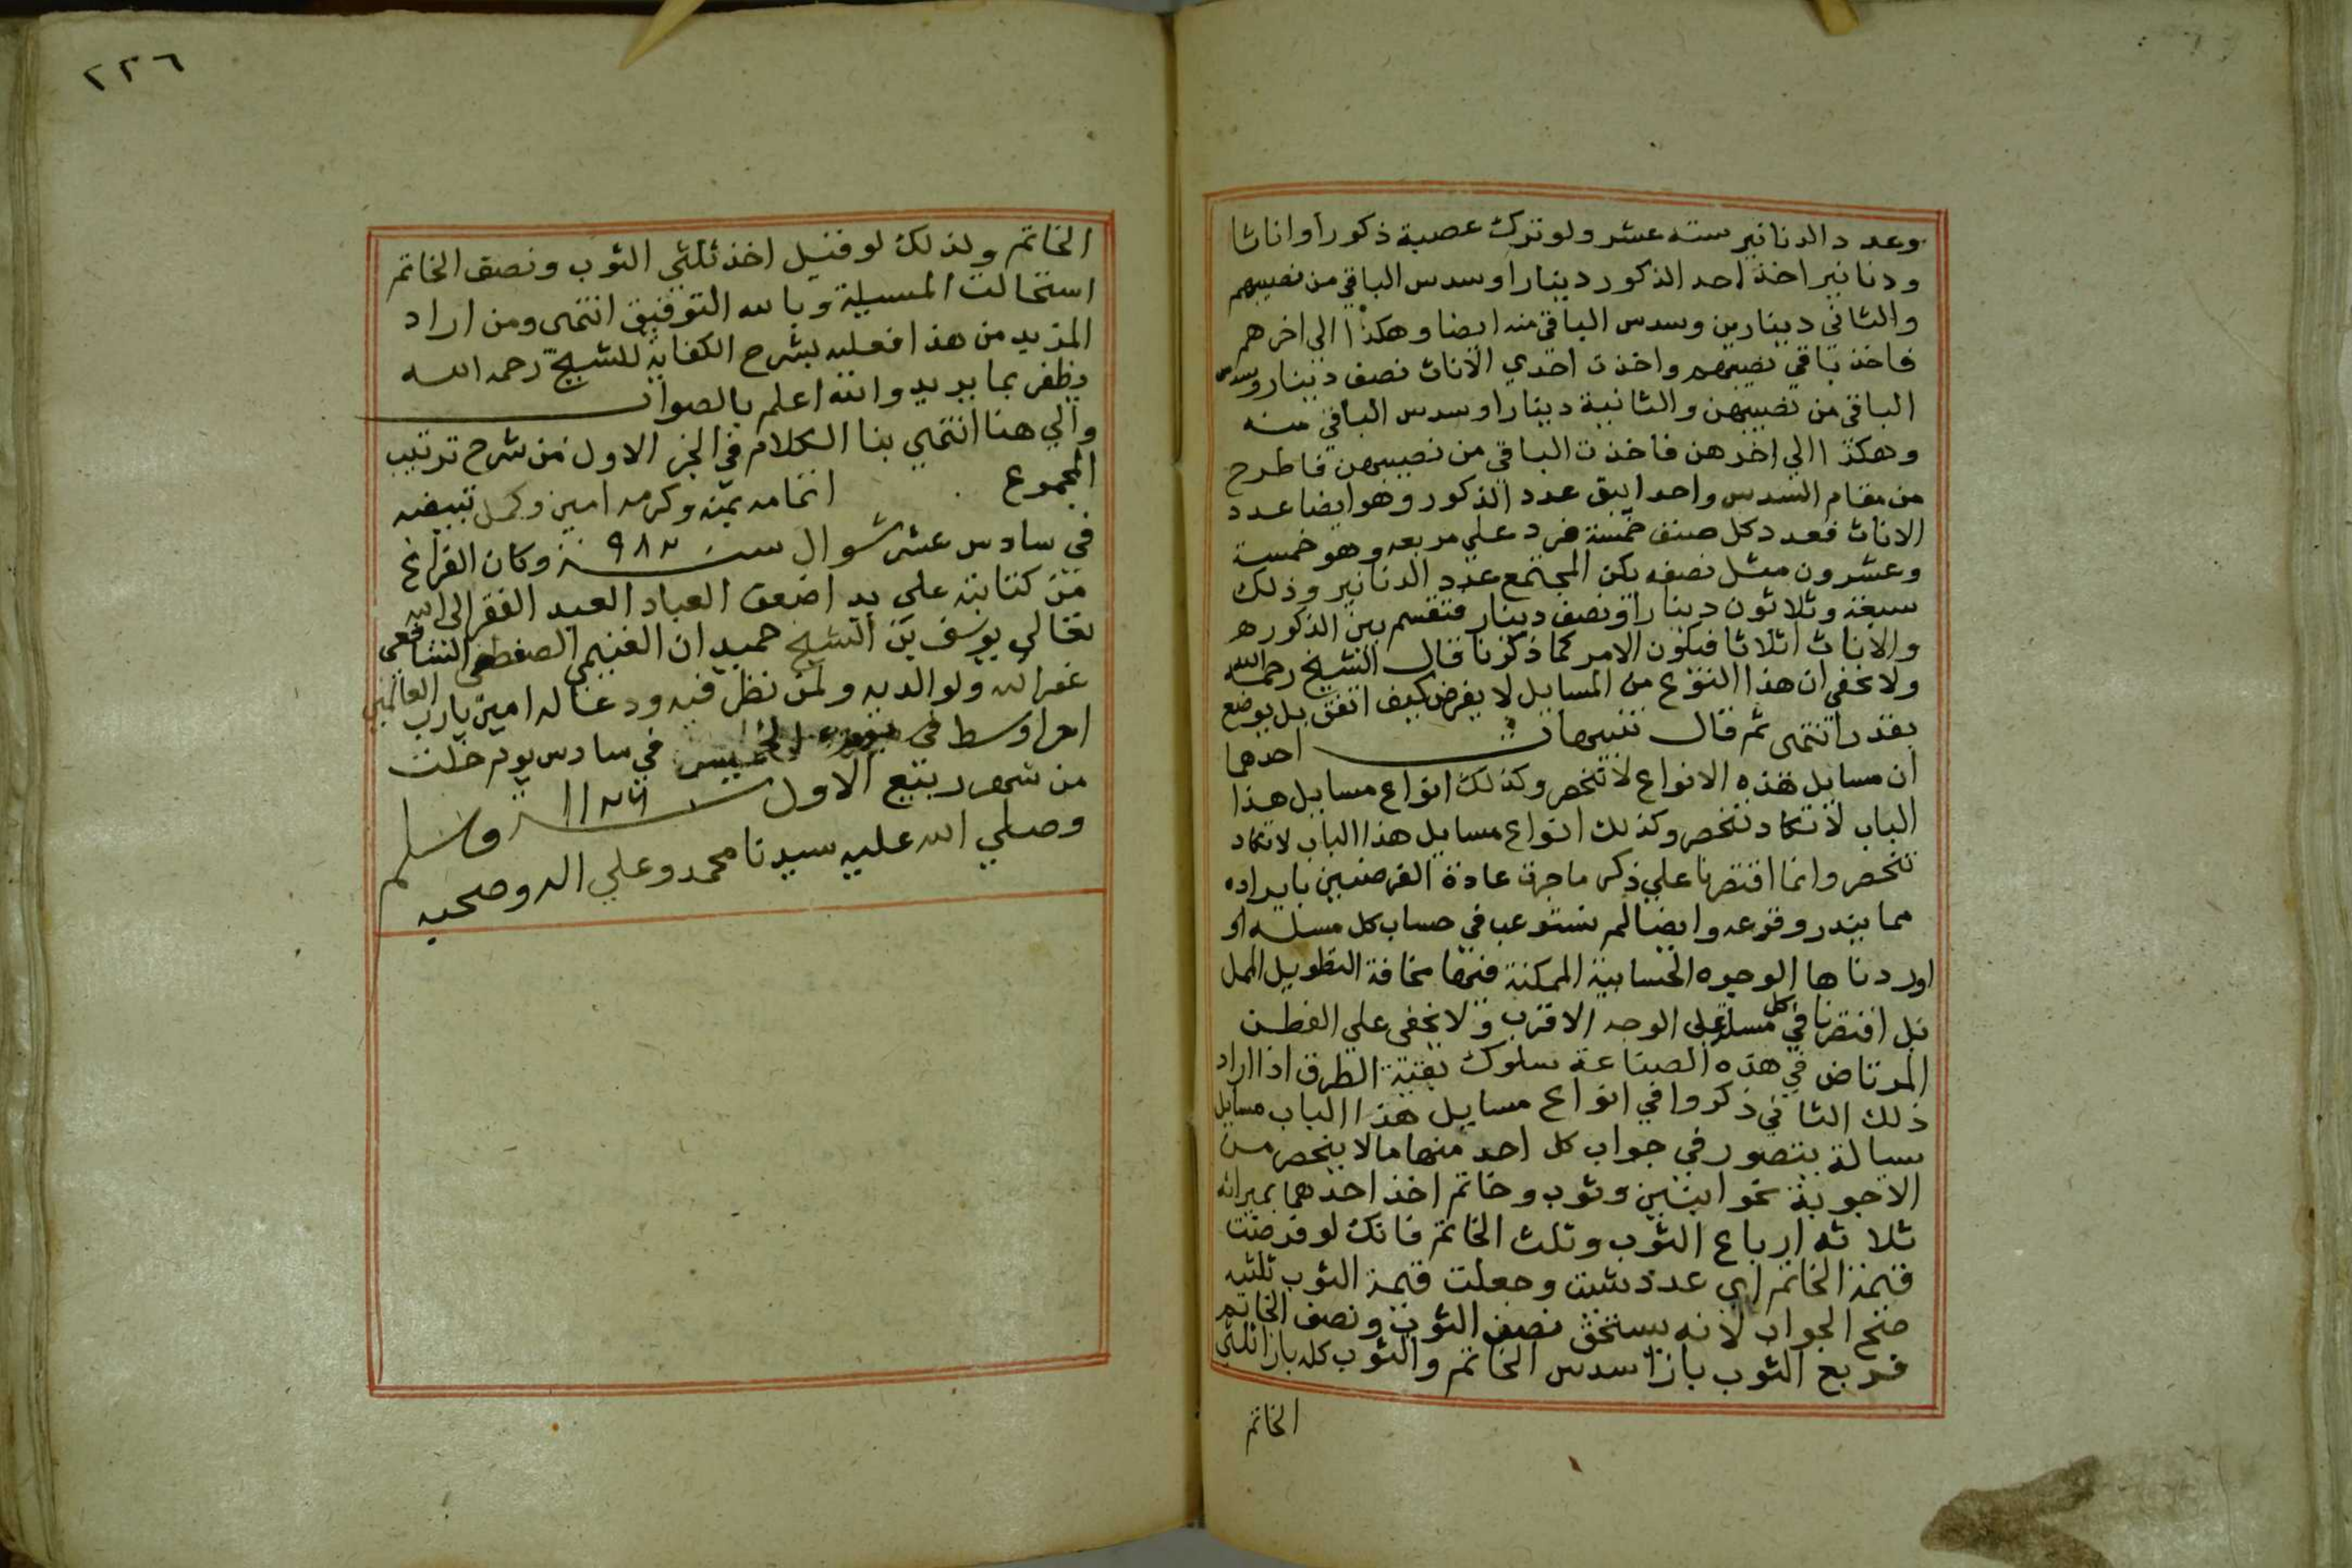 وعدد الدنانير سته عشر ولو ترك عصبة ذكورا واناثا
ودنانير اخذ احد الذكور دينارا وسدس الباقي من نصيبهم
والثاني دينارين وسدس الباقي منه ايضا وهكذا الى اخرهم
فاخذ باقي نصيبهم واخذت احدي الاناث نصف دينار وسدس
الباقي من نصيبهن والثانية دينارا وسدس الباقي منه
وهكذا الي اخرهن فاخذت الباقي من نصيبهن فاطرح
من مقام السدس واحدا يبق عدد الذكور وهو ايضا عدد
الاناث فعدد كل صنف خمسة فزد علي مربعه وهو خمسة
وعشرون مثل نصفه يكن المجتمع عدد الدنانير وذلك
سبعة وثلاثون دينارا ونصف دينار فتقسم بين الذكور
والاناث اثلاثا فيكون الامر كما ذكرنا قال الشيخ رحمه الله
ولا يخفي ان هذا النوع من المسايل لا يفرض كيف اتفق بل يوضع
بقدر انتهى ثم قال تنبيهات احدها
ان مسايل هذه الانواع لا تنحصر وكذلك انواع مسايل هذا
الباب لا تكاد تنحصر وكذلك انواع مسايل هذا الباب لا تكاد
تنحصر وانما اقتصرنا علي ذكر ما جرت عادة الفرضيين بايراده
مما يندر وقوعه وايضا لم نستوعب في حساب كل مسلة او
اوردناها الوجوه الحسابية الممكنة فيها مخافة التطويل الممل
بل اقتصرنا في كل مسلة على الوجه الاقرب ولا يخفى علي الفطن
المرتاض في هذه الصناعة سلوك بقية الطرق اذا اراد
ذلك الثاني ذكروا في انواع مسايل هذا الباب مسايل
سيالة يتصور في جواب كل احد منها مالا ينحصر من
الاجوبة نحو ابنين وثوب وخاتم اخذ احدهما بميراثه
ثلاثه ارباع الثوب وثلث الخاتم فانك لو فرضت
قيمة الخاتم اي عدد شيت وجعلت قيمة الثوب ثلثيه
صح الجواب لانه يستحق نصف الثوب ونصف الخاتم
فربع الثوب بازا سدس الخاتم والثوب كله بازا ثلثي
الخاتم
٢٢٦
الخاتم ولذلك لو قيل اخذ ثلثي الثوب ونصف الخاتم
استحالت المسيلة وبالله التوفيق انتهى ومن اراد
المزيد من هذا فعليه بشرح الكفاية للشيخ رحمه الله
يظفر بما يريد والله اعلم بالصواب
والي هنا انتهي بنا الكلام في الجز الاول من شرح ترتيب
المجموع اتمامه بمنه وكرمه امين وكمل تبييضه
في سادس عشر شوال سنة ٩٨٣ وكان الفراغ
من كتابته علي يد اضعف العباد العبد الفقر الى الله
تعالى يوسف بن الشيخ حميدان الغنيمي الشافعي
غفر الله له ولوالديه ولمن نظر فيه ودعا له امين يارب العالمين
الخميس في سادس يوم خلت
من شهر ربيع الاول سنة
وصلي الله عليه سيدنا محمد وعلي اله وصحبه وسلم